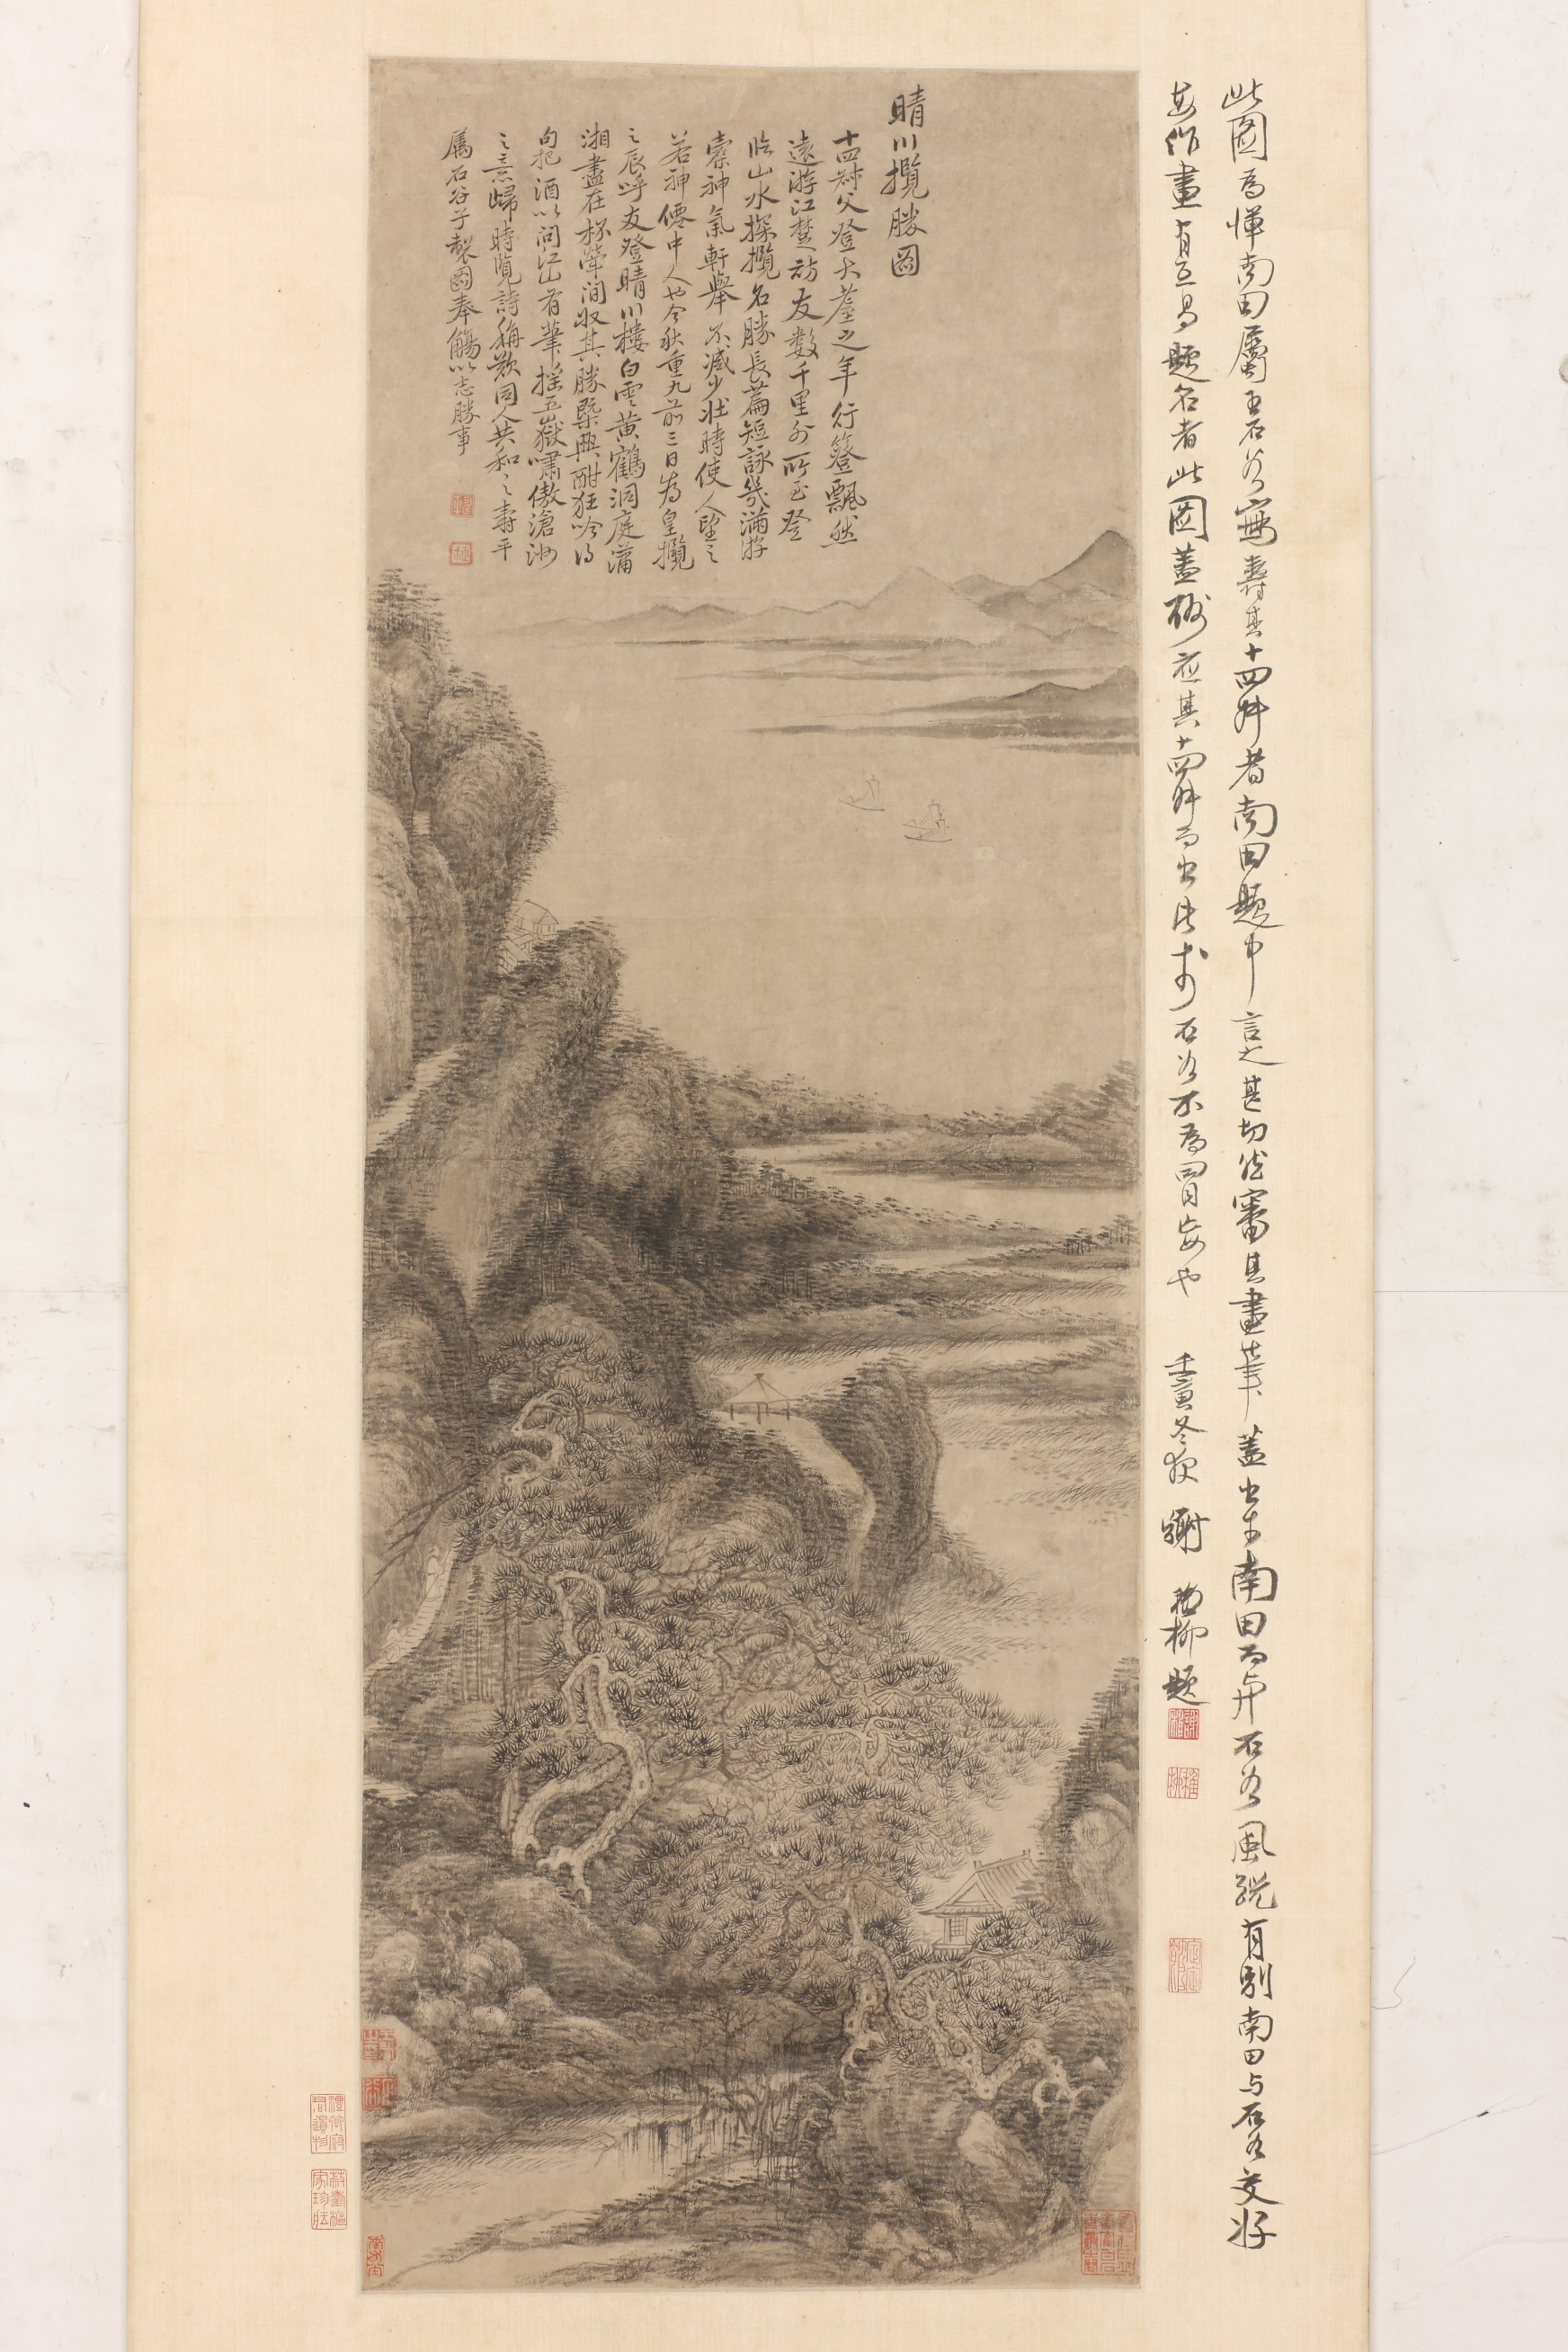 此圖為惲南田屬王石谷寫壽其十四叔者南田題中言之甚切然審其畫筆蓋出於南田而与石谷風貌有別南田与石谷交好
每作畫有互易題名者此圖蓋酬應其十四叔而出此於石谷不為冒妄也 壬寅冬夜 謝稚柳題
晴川攬勝圖
十四叔父登大耋之年行簦飄然
遠游江楚訪友數千里外所至登
临山水探攬名勝長篇短詠幾滿游
橐神氣軒舉不減少壯時使人望之
若神僊中人也今秋重九前三日為皇攬
之辰呼友登晴川樓白雲黃鶴洞庭瀟
湘盡在杯斝间收其勝槩興酣狂吟得
句把酒以问江山有筆搖五嶽嘯傲滄洲
之意歸時覽詩稱歎同人共和之壽平
屬石谷子製圖奉觴以志勝事